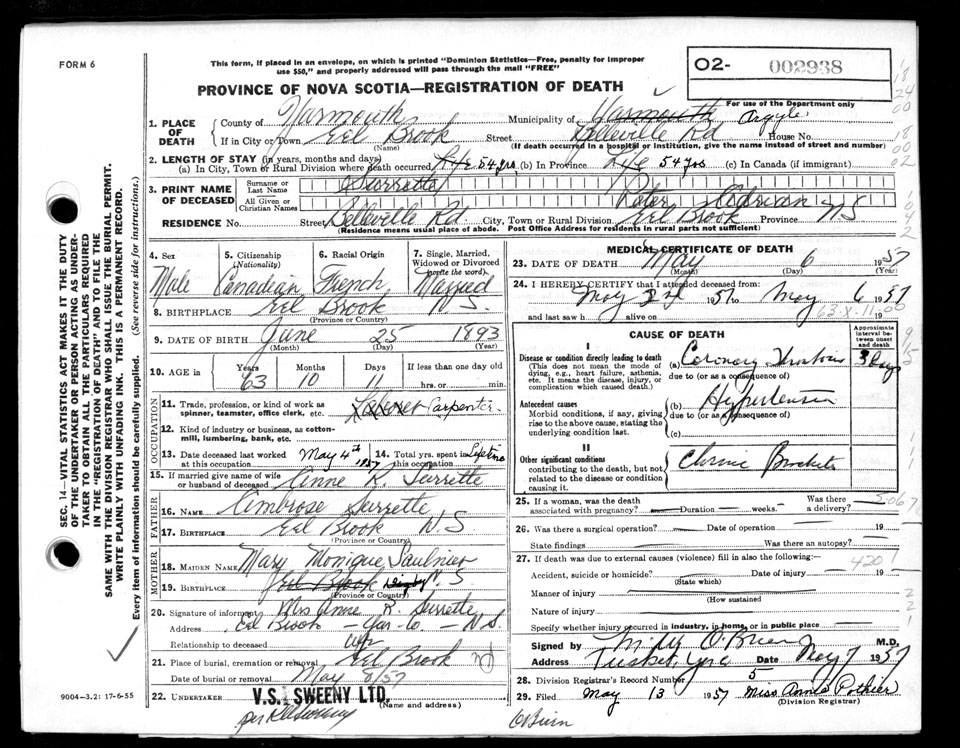 FORM 6
This form, if placed in an envelope, on which is printed "Dominion Statistics—Free, penalty for improper
use $50," and properly addressed will pass through the mail "FREE"
O2- 002938
PROVINCE OF NOVA SCOTIA—REGISTRATION OF DEATH
For use of the Department only
1. PLACE OF DEATH
County of Yarmouth Municipality of Yarmouth Argyle
If in City or Town Eel Brook Street Belleville Rd House No.
(Name) (If death occurred in a hospital or institution, give the name instead of street and number)
2. LENGTH OF STAY (in years, months and days)
(a) In City, Town or Rural Division where death occurred Life 54 yrs (b) In Province Life 54 yrs (c) In Canada (if immigrant)
3. PRINT NAME OF DECEASED
Surname or Last Name Surrette
All Given or Christian Names Peter Adrian
RESIDENCE No. Street Belleville Rd. City, Town or Rural Division Eel Brook Province NS
(Residence means usual place of abode. Post Office Address for residents in rural parts not sufficient)
4. Sex
Male
5. Citizenship (Nationality)
Canadian
6. Racial Origin
French
7. Single, Married, Widowed or Divorced (write the word)
Married
8. BIRTHPLACE Eel Brook N.S.
(Province or Country)
9. DATE OF BIRTH June 25 1893
(Month) (Day) (Year)
10. AGE in Years Months Days If less than one day old
63 10 11 hrs. or min.
OCCUPATION
11. Trade, profession, or kind of work as spinner, teamster, office clerk, etc. Laborer Carpenter
12. Kind of industry or business, as cotton-mill, lumbering, bank, etc.
13. Date deceased last worked at this occupation May 4th 1957
14. Total yrs. spent in this occupation Lifetime
15. If married give name of wife or husband of deceased Anne R. Surrette
FATHER
16. NAME Ambrose Surrette
17. BIRTHPLACE Eel Brook N.S.
(Province or Country)
MOTHER
18. MAIDEN NAME Mary Monique Saulnier
19. BIRTHPLACE Eel Brook Digby N.S.
(Province or Country)
20. Signature of informant Mrs Anne R. Surrette
Address Eel Brook – Yar-Co. – N.S.
Relationship to deceased wife
21. Place of burial, cremation or removal Eel Brook
Date of burial or removal May 8/57
22. UNDERTAKER V.S. SWEENY LTD.
(Name and address)
9004-3.2: 17-6-55
SEC. 14—VITAL STATISTICS ACT MAKES IT THE DUTY
OF THE UNDERTAKER OR PERSON ACTING AS UNDER-
TAKER TO OBTAIN ALL THE PARTICULARS REQUIRED
IN THE "REGISTRATION OF DEATH" AND TO FILE THE
SAME WITH THE DIVISION REGISTRAR WHO SHALL ISSUE THE BURIAL PERMIT.
WRITE PLAINLY WITH UNFADING INK. THIS IS A PERMANENT RECORD.
Every item of information should be carefully supplied. (See reverse side for instructions.)
MEDICAL CERTIFICATE OF DEATH
23. DATE OF DEATH May 6 1957
(Month) (Day) (Year)
24. I HEREBY CERTIFY that I attended deceased from:
May 3rd 1957 to May 6 1957
and last saw h alive on 19
63-X-11
CAUSE OF DEATH
Approximate interval between onset and death
I
Disease or condition directly leading to death
(This does not mean the mode of dying, e.g., heart failure, asthenia, etc. It means the disease, injury, or complication which caused death.)
(a) Coronary Thrombosis 3 Days
due to (or as a consequence of)
Antecedent causes
Morbid conditions, if any, giving rise to the above cause, stating the underlying condition last.
(b) Hypertension
due to (or as a consequence of)
(c)
II
Other significant conditions
contributing to the death, but not related to the disease or condition causing it.
Chronic Bronchitis
25. If a woman, was the death associated with pregnancy? Duration weeks. Was there a delivery?
26. Was there a surgical operation? Date of operation 19
State findings Was there an autopsy?
27. If death was due to external causes (violence) fill in also the following:
Accident, suicide or homicide? Date of injury 19
420 1
(State which)
Manner of injury
(How sustained)
Nature of injury
Specify whether injury occurred in industry, in home or in public place
Signed by Milly O'Brien M.D.
Address Tusket, Yar Co Date May 7 1957
28. Division Registrar's Record Number 5
29. Filed May 13 1957 Miss Annie Pothier
(Division Registrar)
per Sweeny
O'Brien